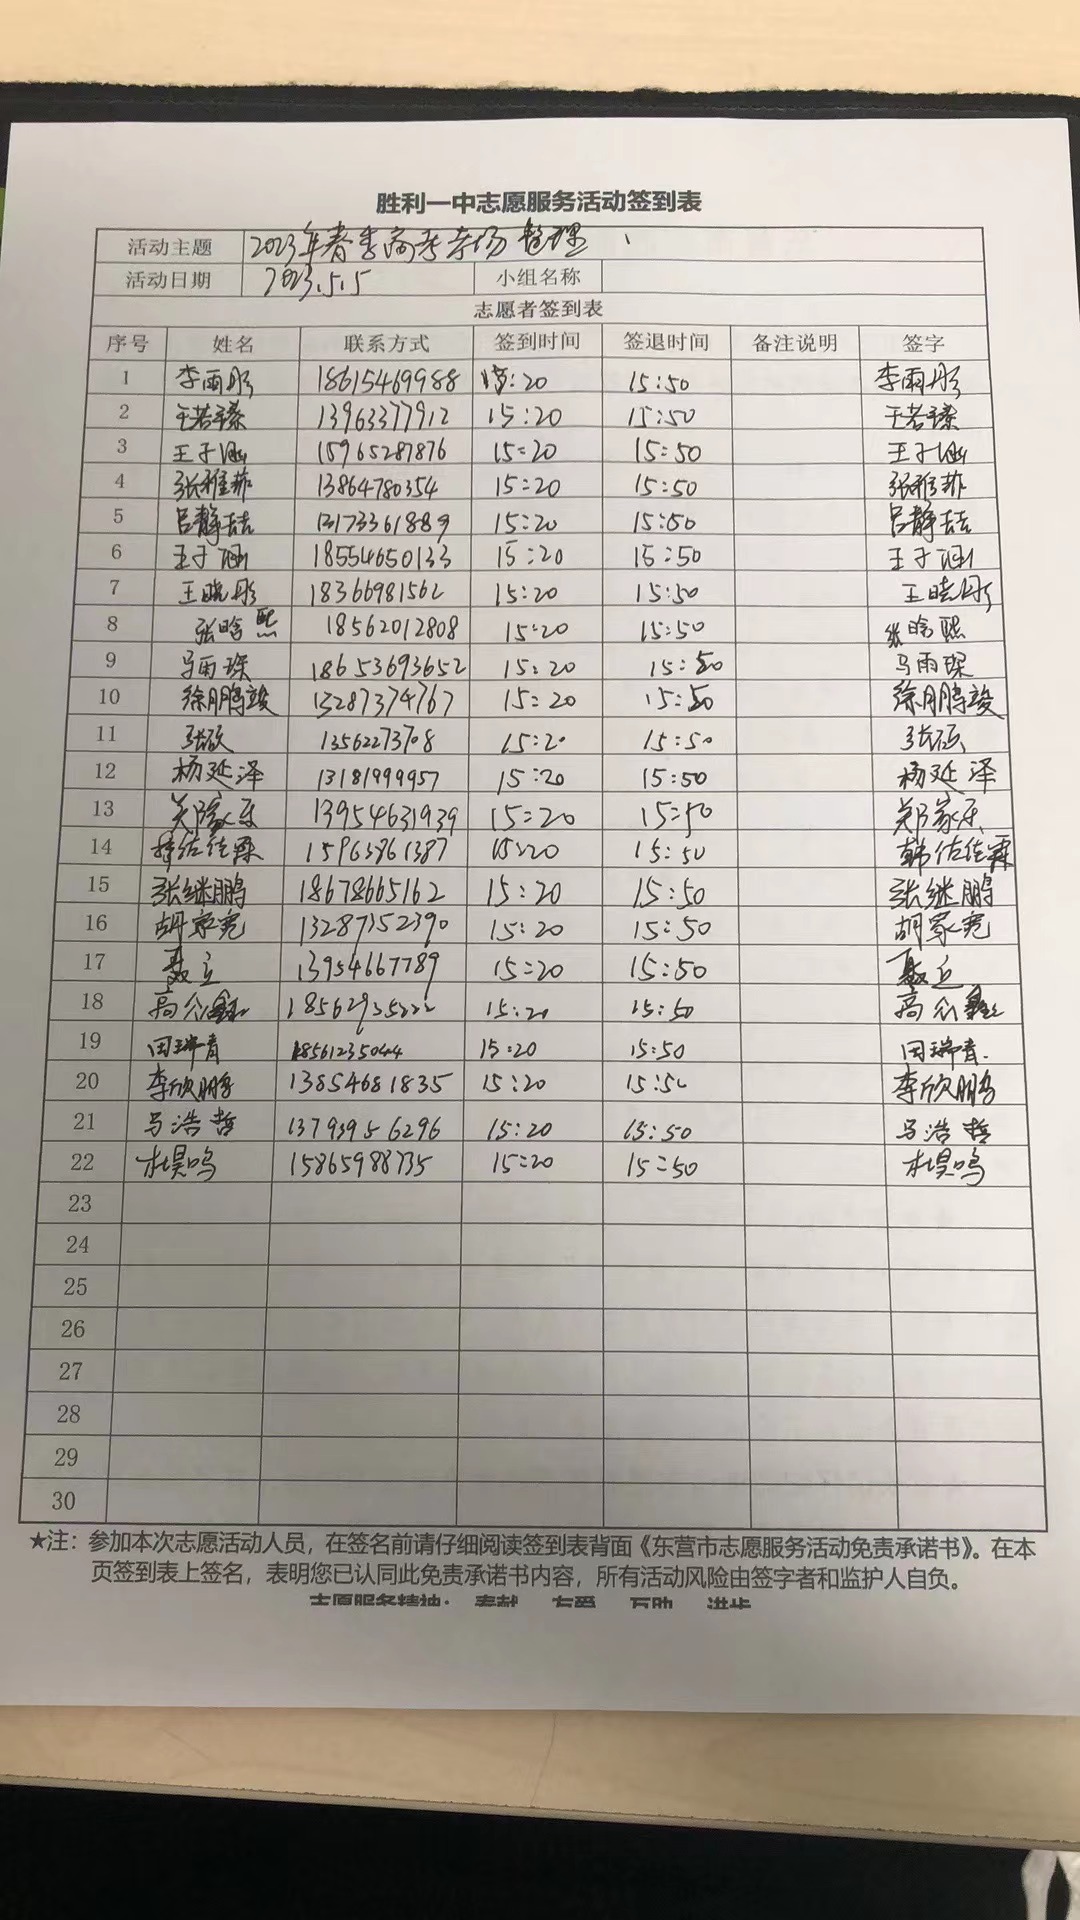 胜利一中志愿服务活动签到表
活动主题 2023年春季高考考场整理
活动日期 2023.5.5 小组名称
志愿者签到表
序号 姓名 联系方式 签到时间 签退时间 备注说明 签字
1 李雨彤 18615469988 15:20 15:50 李雨彤
2 王若臻 13963377912 15:20 15:50 王若臻
3 王子涵 15965287876 15:20 15:50 王子涵
4 张雅菲 13864780354 15:20 15:50 张雅菲
5 吕静喆 13173361889 15:20 15:50 吕静喆
6 王子涵 18554650133 15:20 15:50 王子涵
7 王晓彤 18366981562 15:20 15:50 王晓彤
8 张晗熙 18562012808 15:20 15:50 张晗熙
9 马雨琛 18653693652 15:20 15:50 马雨琛
10 徐鹏竣 13287374767 15:20 15:50 徐鹏竣
11 张硕 13562273708 15:20 15:50 张硕
12 杨延泽 13181999957 15:20 15:50 杨延泽
13 郑家乐 13954631939 15:20 15:50 郑家乐
14 韩佐佳霖 15963861387 15:20 15:50 韩佐佳霖
15 张继鹏 18678665162 15:20 15:50 张继鹏
16 胡家宽 13287352390 15:20 15:50 胡家宽
17 聂立 13954667789 15:20 15:50 聂立
18 高 18562935222 15:20 15:50 高
19 田瑞青 18561235044 15:20 15:50 田瑞青
20 李欣鹏 13854681835 15:20 15:50 李欣鹏
21 马浩哲 13793956296 15:20 15:50 马浩哲
22 杜昊鸣 15865988735 15:20 15:50 杜昊鸣
23
24
25
26
27
28
29
30
★注：参加本次志愿活动人员，在签名前请仔细阅读签到表背面《东营市志愿服务活动免责承诺书》。在本
页签到表上签名，表明您已认同此免责承诺书内容，所有活动风险由签字者和监护人自负。
志愿服务精神：奉献 友爱 互助 进步